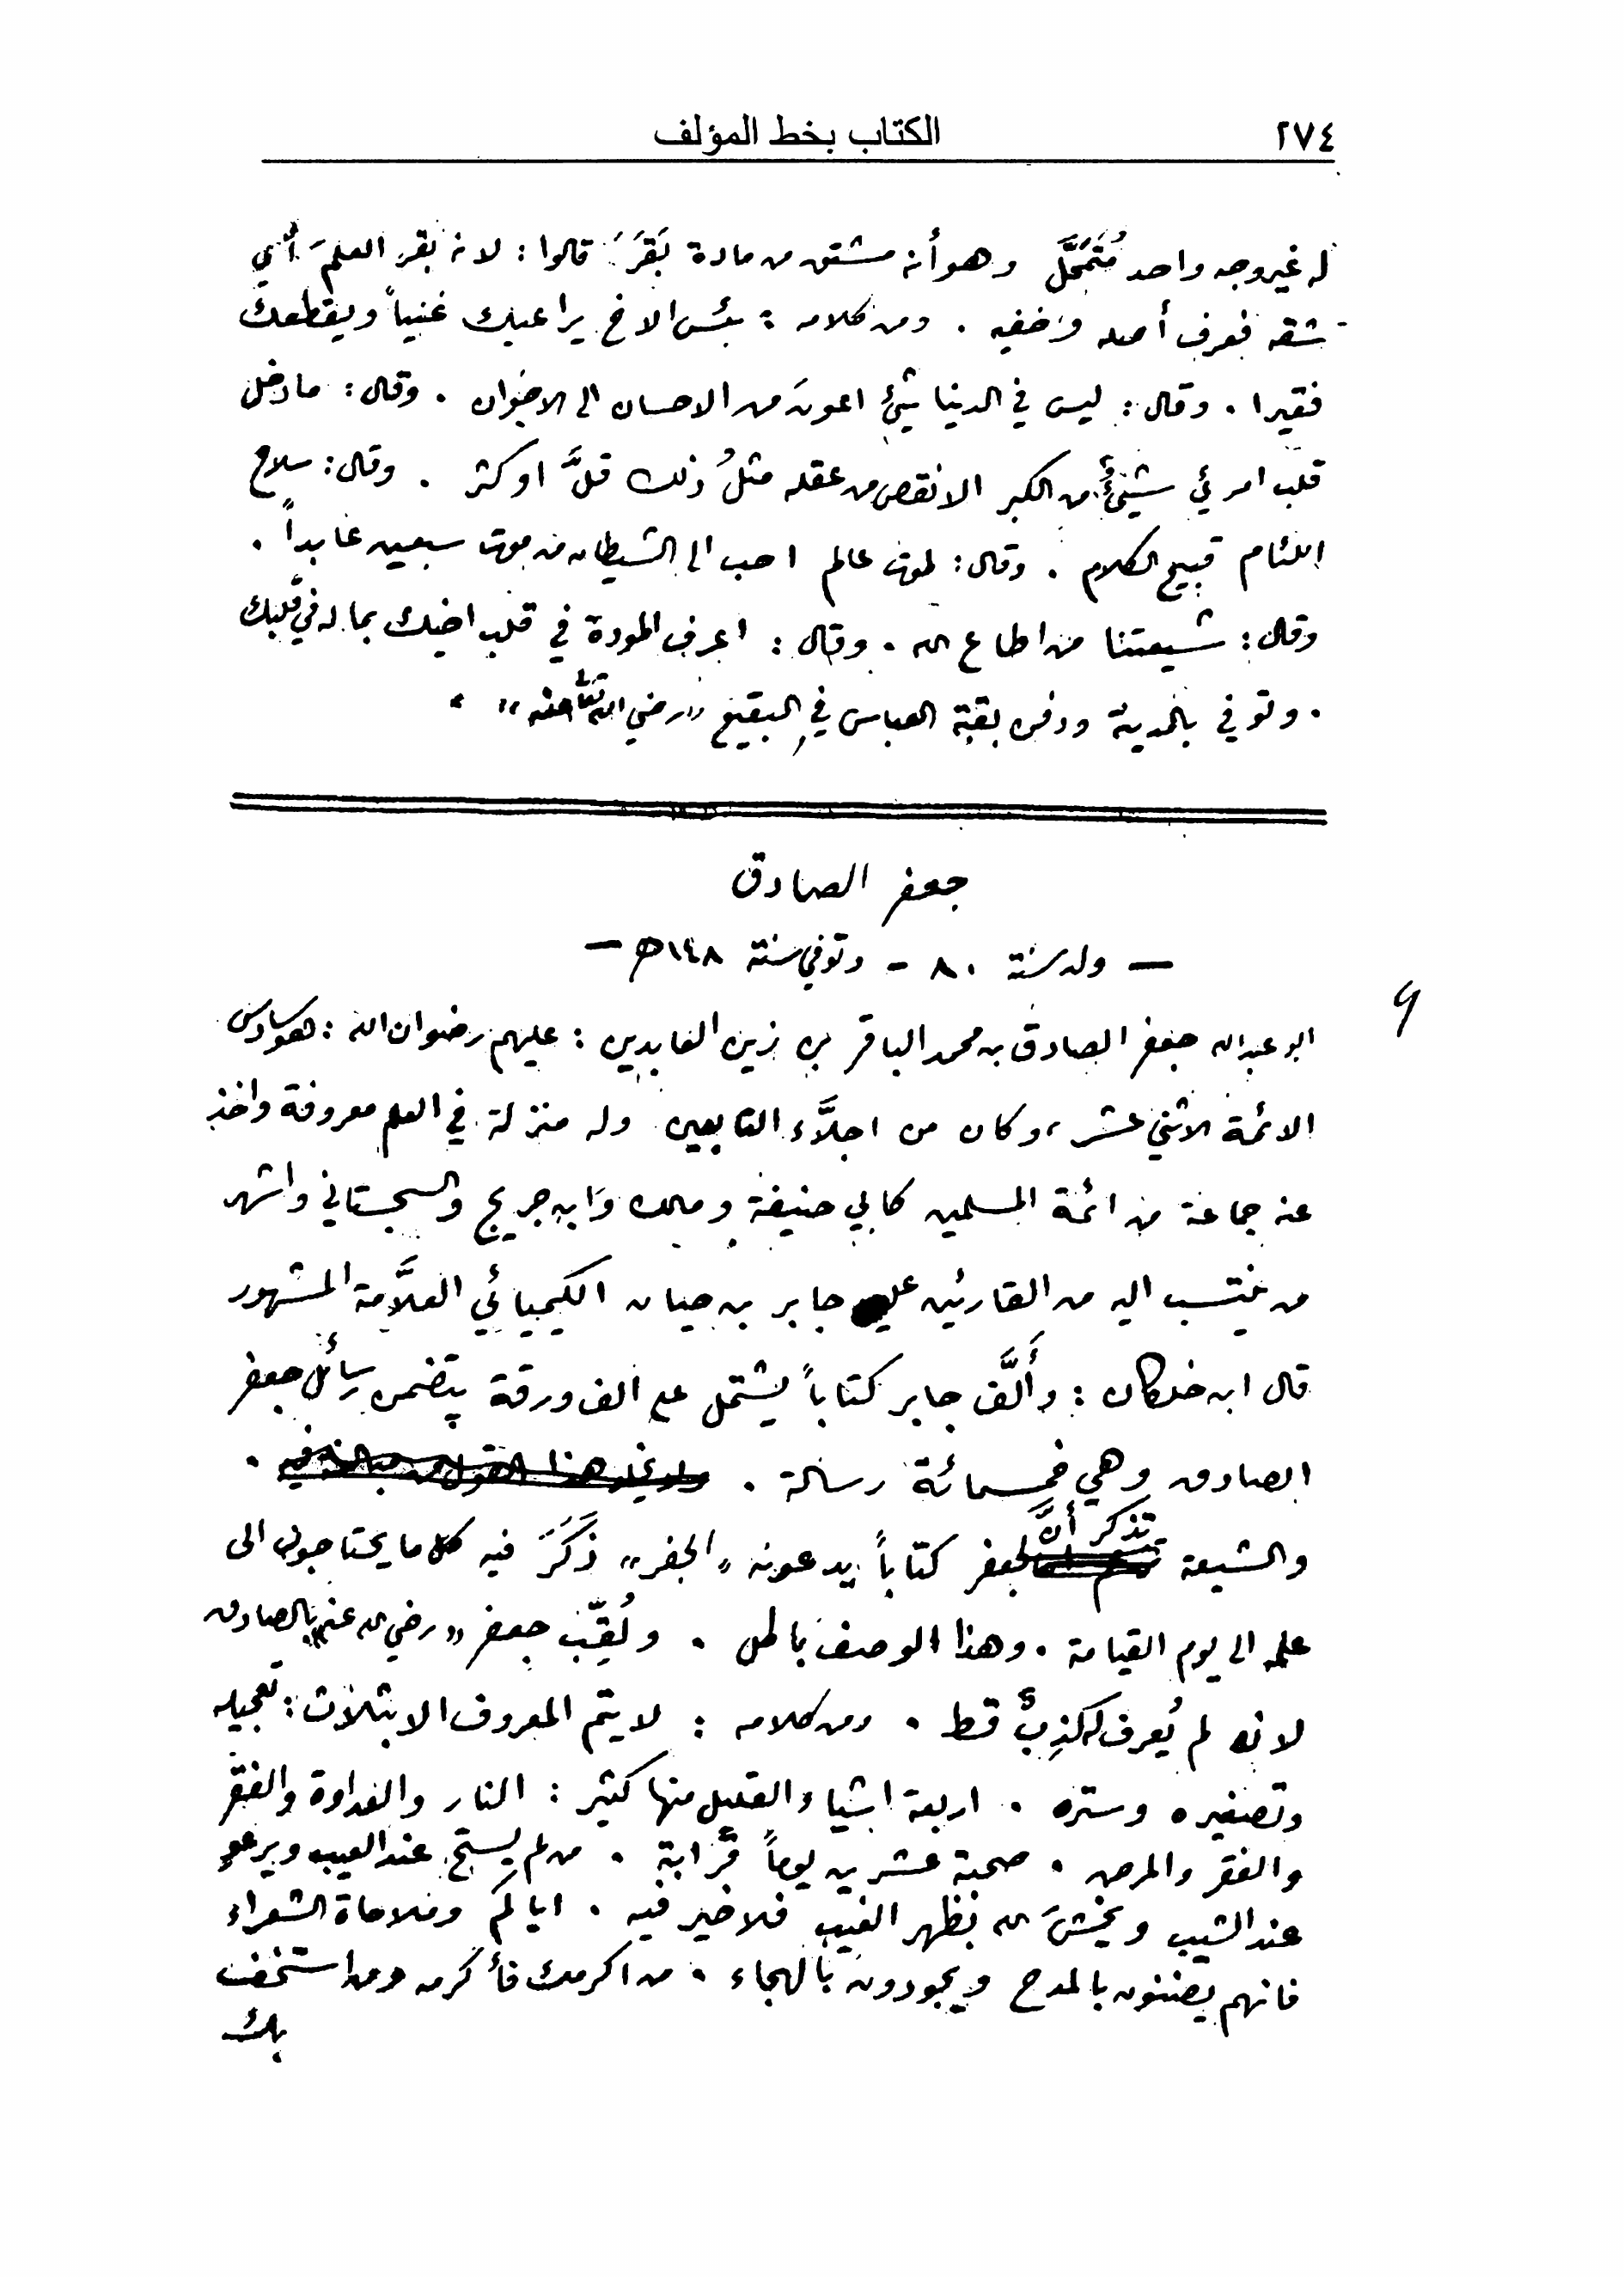 ٢٧٤
الكتاب بخط المؤلف
له غير وجه واحد مُتَمَحَّل وهو أنه مشتق من مادة بَقَرَ قالوا : لانه بقر العلمَ أي
شقه فعرف أصله وخفيه . ومن كلامه : بئس الاخ يراعيك غنياً ويقطعك
فقيرا . وقال : ليس في الدنيا شيئ اعون من الاحسان الى الاخوان . وقال : ما دخل
قلب امرئي شيئ من الكبر الا نقص من عقله مثلُ ذلك قلَّ او كثر . وقال : سلاح
اللئام قبيح الكلام . وقال : لموت عالم احب الى الشيطان من موت سبعين عابداً .
وقال : شيعتنا من اطاع الله . وقال : اعرف المودة في قلب اخيك بما له في قلبك
. وتوفي بالمدينة ودفن بقبة العباس في البقيع «رضي الله تعالى عنه»
جعفر الصادق
— ولد سنة ٨٠ - وتوفي سنة ١٤٨ هـ —
٩
ابو عبد الله جعفر الصادق بن محمد الباقر بن زين العابدين : عليهم رضوان الله : هو سادس
الائمة الاثني عشر ، وكان من اجلَّاء التابعين وله منزلة في العلم معروفة واخذ
عنه جماعة من ائمة المسلمين كابي حنيفة ومالك وابن جريج والسجستاني واشهر
من ينتسب اليه من القارئين عليه جابر بن حيان الكيميائي العلَّامة المشهور
قال ابن خلكان : وأَلَّف جابر كتاباً يشتمل على الف ورقة يتضمن رسائل جعفر
الصادق وهي خمسمائة رسالة .
والشيعة تذكر أنَّ لجعفر كتاباً يدعونه «الجفر» ذَكَرَ فيه كل ما يحتاجون الى
علمه الى يوم القيامة . وهذا الوصف باطل . ولُقِّب جعفر «رضي الله عنه» بالصادق
لانه لم يُعرف له كذِبٌ قط . ومن كلامه : لا يتم المعروف الا بثلاث : تعجيله
وتصغيره وستره . اربعة اشياء القليل منها كثير : النار والعداوة والفقر
والفقر والمرض . صحبة عشرين يوماً قرابة . من لم يستحِ عند العيب ويرعوِ
عند الشيب ويخشَ الله بظهر الغيب فلا خير فيه . اياكم وملاحاة الشعراء
فانهم يضنون بالمدح ويجودون بالهجاء . من اكرمك فأكرمه ومن استخف
بك